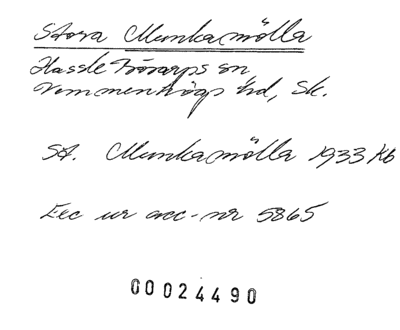 Stora Munkamölla
Hassle Bösarps sn
Vemmenhögs hd, Sk.
St. Munkamölla 1933 Kb
Exc ur acc-nr 5865
00024490